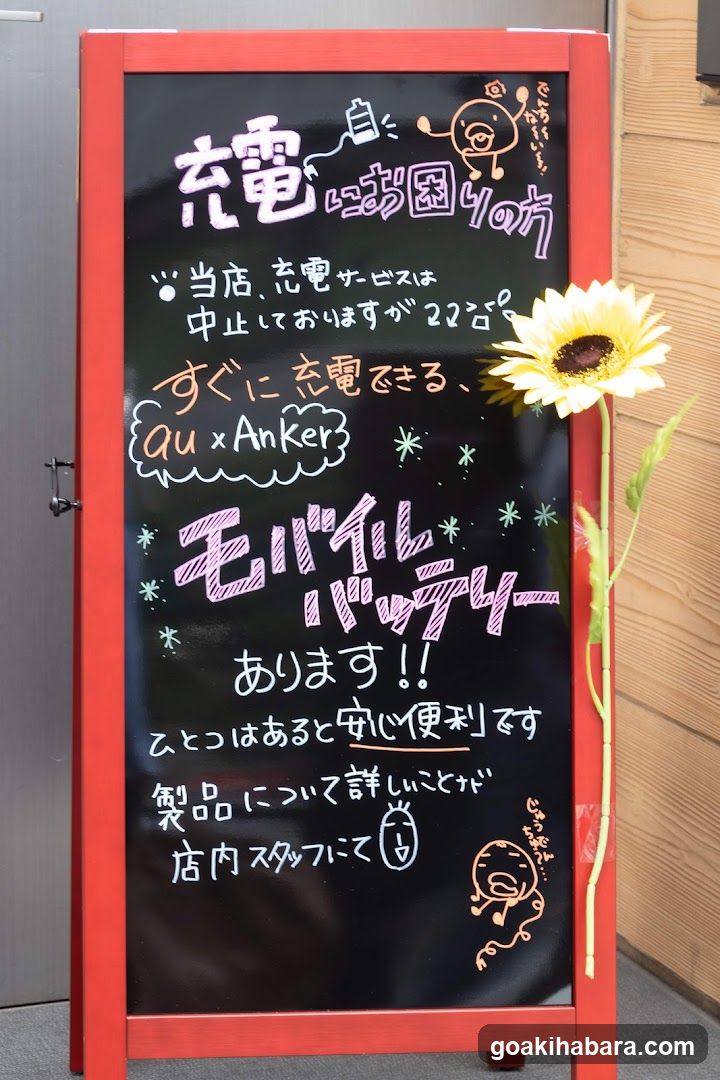 充電にお困りの方
当店、充電サービスは
中止しておりますが
すぐに充電できる、
au x Anker
モバイル
バッテリー
あります!!
ひとつはあると安心便利です
製品について詳しいことナド
店内スタッフにて
goakihabara.com